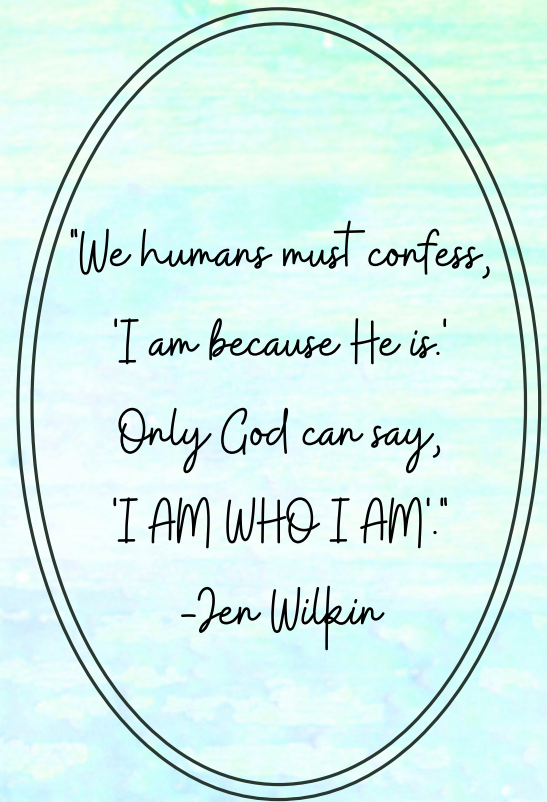 "We humans must confess,
'I am because He is.'
Only God can say,
'I AM WHO I AM'."
-Jen Wilkin